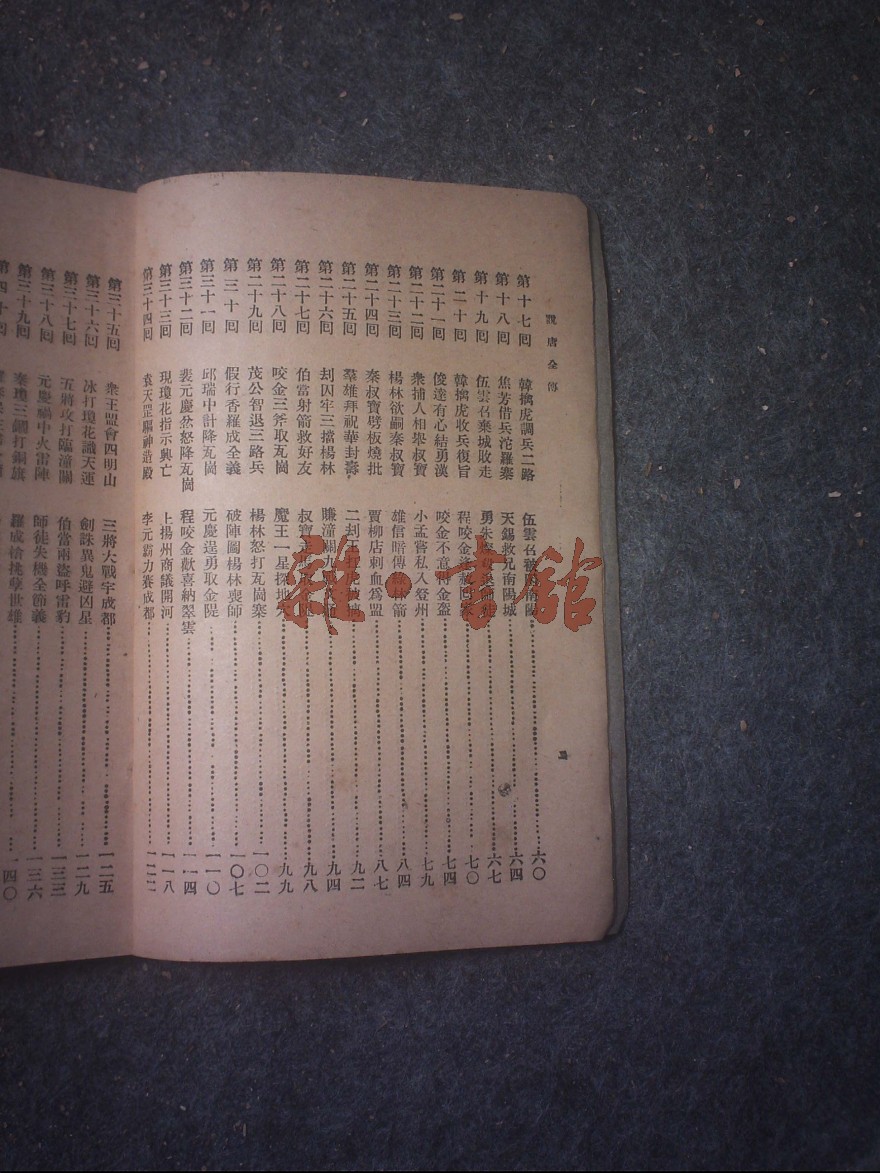 說唐全傳
第十七回 韓擒虎調兵二路 伍雲召 南陽 六〇
第十八回 焦芳借兵沱羅寨 天錫救兄南陽城 六四
第十九回 伍雲召棄城敗走 勇朱 六七
第二十回 韓擒虎收兵復旨 程咬金 七〇
第二十一回 俊達有心結勇漢 咬金不意 金盔
第二十二回 衆捕人相舉叔寶 小孟嘗私入登州 七九
第二十三回 楊林欲嗣秦叔寶 雄信暗傳綠林箭 八四
第二十四回 秦叔寶劈板燒批 賈柳店刺血爲盟 八七
第二十五回 羣雄拜祝華封壽 二刦王 九二
第二十六回 刦囚牢三擋楊林 賺潼關九 九四
第二十七回 伯當射箭救好友 叔寶走 九八
第二十八回 咬金三斧取瓦崗 魔王一星探地穴 九九
第二十九回 茂公智退三路兵 楊林怒打瓦崗寨 一〇二
第三十回 假行香羅成全義 破陣圖楊林喪師 一〇七
第三十一回 邱瑞中計降瓦崗 元慶逞勇取金隄 一一〇
第三十二回 裴元慶忿怒降瓦崗 程咬金歡喜納翠雲 一一四
第三十三回 現瓊花指示興亡 上揚州商議開河 一一八
第三十四回 袁天罡驅神造殿 李元霸力賽成都 一二二
第三十五回 衆王盟會四明山 三將大戰宇成都 一二五
第三十六回 冰打瓊花識天運 劍誅異鬼避凶星 一二九
第三十七回 五將攻打臨潼關 伯當兩盜呼雷豹 一三三
第三十八回 元慶禍中火雷陣 師徒失機全節義 一三六
第三十九回 秦瓊三鐧打銅旗 羅成槍挑孽世雄 一四〇
第四十回
雜·書館